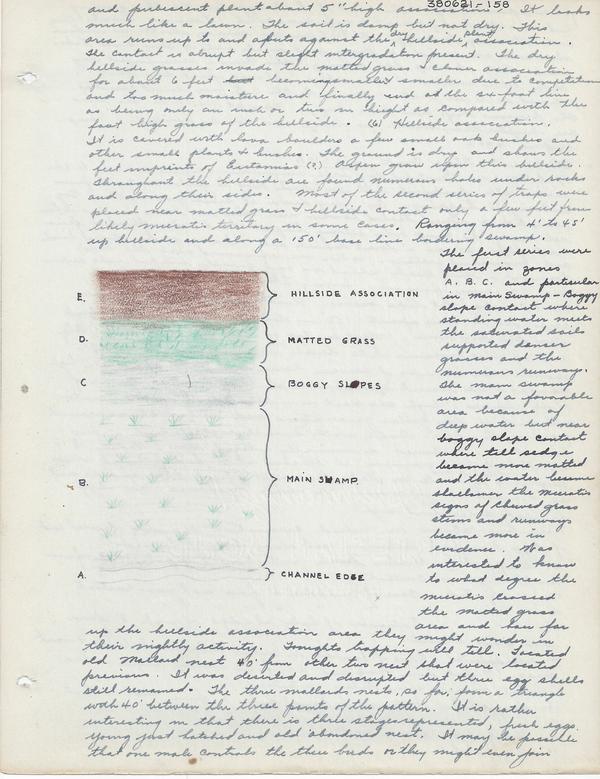 380621-158
and pubescent plant about 5" high associations. It looks
much like a lawn. The soil is damp but not dry. This
area runs up to and abuts against the dry hillside plant association.
The contact is abrupt but slight intergradation present. The dry
hillside grasses invade the matted grass & clover association
for about 6 feet but becoming smaller due to competition
and too much moisture and finally end at the six foot line
as being only an inch or two in height as compared with the
foot high grass of the hillside. (6) Hillside association.
It is covered with lava boulders a few small oak bushes and
other small plants & bushes. The ground is dry and shows the
feet imprints of Eutamias (?). Aspen grow upon this hillside.
Throughout the hillside are found numerous holes under rocks
and along their sides. Most of the second series of traps were
placed near matted grass & hillside contact only a few feet from
likely microtis territory in some cases. Ranging from 4' to 45'
up hillside and along a 150' base line bordering swamp.
The first series were
placed in zones
A. B. C. and particular
in main Swamp-Boggy
slope contact where
standing water meets
the saturated soils
supported denser
grasses and the
numerous runways.
The main swamp
was not a favorable
area because of
deep water but near
boggy slope contact
where tall sedge
became more matted
and the water became
shallower the microtis
signs of chewed grass
stems and runways
became more in
evidence. Was
interested to know
to what degree the
microtis crossed
the matted grass
area and how far
E. HILLSIDE ASSOCIATION
D. MATTED GRASS
C BOGGY SLOPES
B. MAIN SWAMP
A. CHANNEL EDGE
up the hillside association area they might wonder in
their nightly activity. Tonights trapping will tell. Located
old Mallard nest 40' from other two nest that were located
previous. It was deserted and disrupted but three egg shells
still remained. The three mallards nests, so far, form a triangle
with 40' between the three points of the pattern. It is rather
interesting in that there is three stages represented, fresh eggs,
young just hatched and old abandoned nest. It may be possible
that one male controls the three birds or they might even join